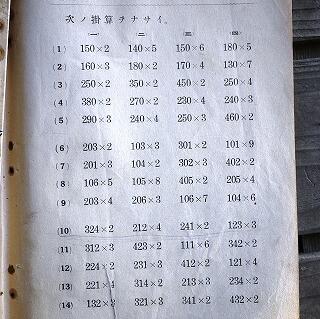 次ノ掛算ヲナサイ。
(一) (二) (三) (四)
(1) 150×2 140×5 150×6 180×5
(2) 160×3 180×2 170×4 130×7
(3) 250×2 350×2 450×2 250×4
(4) 380×2 270×2 230×4 240×3
(5) 290×3 240×4 250×3 460×2
(6) 203×2 103×3 301×2 101×9
(7) 201×3 104×2 302×3 402×2
(8) 106×5 105×8 405×2 205×4
(9) 203×4 206×3 106×7 104×6
(10) 324×2 212×4 241×2 123×3
(11) 312×3 423×2 111×6 342×2
(12) 224×2 231×3 412×2 121×4
(13) 221×4 314×2 213×3 234×2
(14) 132×3 321×3 341×2 432×2